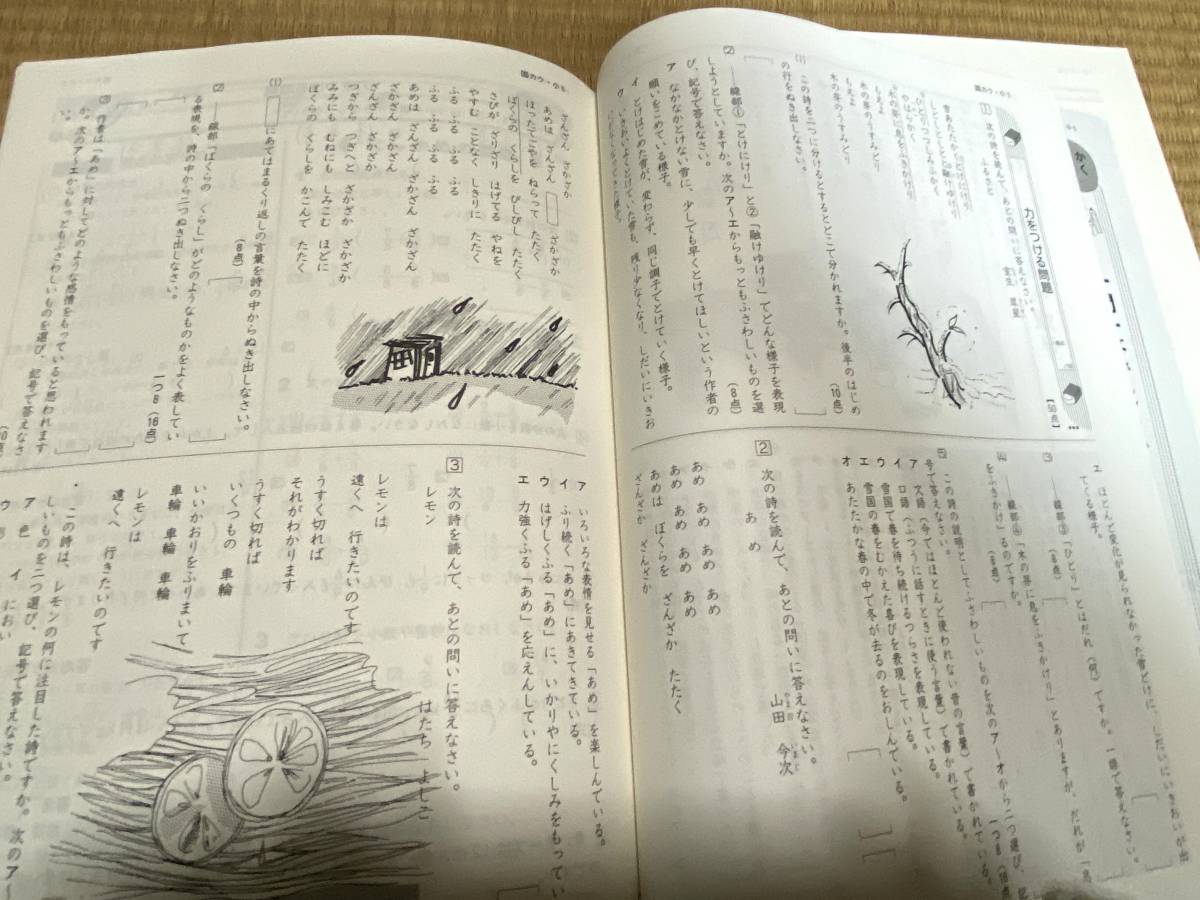 国カウ・小5
かく
力をつける問題
【50点】
1 次の詩を読んで、あとの問いに答えなさい。
ふるさと
室生 犀星
雪あたたかくとけにけり
しとしとしとと融けゆけり
ひとりつつしみふかく
やはらかく
木の芽に息をふきかけり
もえよ
木の芽のうすみどり
もえよ
木の芽のうすみどり
(1) この詩を二つに分けるとするとどこで分かれますか。後半のはじめの行をぬき出しなさい。
(10点)
(2) ――線部①「とけにけり」と②「融けゆけり」でどんな様子を表現しようとしていますか。次のア～エからもっともふさわしいものを選び、記号で答えなさい。
(8点)
ア なかなかとけない雪に、少しでも早くとけてほしいという作者の願いをこめている様子。
イ とけはじめた雪が、変わらず、同じ調子でとけていく様子。
ウ いきおいよくとけていた雪も、残り少なくなり、しだいにいきおいがなくなってきた様子。
エ ほとんど変化が見られなかった雪どけに、しだいにいきおいが出てくる様子。
(3) ――線部③「ひとり」とはだれ(何)ですか。一語で答えなさい。
(8点)
(4) ――線部④「木の芽に息をふきかけり」とありますが、だれが「息をふきかけ」るのですか。
(8点)
(5) この詩の説明としてふさわしいものを次のア～オから二つ選び、記号で答えなさい。
一つ8(16点)
ア 文語(今ではほとんど使われない昔の言葉)で書かれている。
イ 口語(ふつうに話すときに使う言葉)で書かれている。
ウ 雪国で春を待ち続けるつらさを表現している。
エ 雪国の春をむかえた喜びを表現している。
オ あたたかな春の中で冬が去るのをおしんでいる。
2 次の詩を読んで、あとの問いに答えなさい。
あ め
山田 今次
あめ あめ あめ あめ
あめ あめ あめ あめ
あめは ぼくらを ざんざか たたく
ざんざか ざんざか
国カウ・小5
ざんざん ざかざか
あめは ざんざん ざかざか
ほったてごやを ねらって たたく
ぼくらの くらしを びしびし たたく
さびが ざりざり はげてる やねを
やすむ ことなく しきりに たたく
ふる ふる ふる ふる
ふる ふる ふる ふる
あめは ざんざん ざかざん ざかざん
ざかざん ざかざん
ざんざん ざかざか
つぎから つぎへと ざかざか ざかざか
みみにも むねにも しみこむ ほどに
ぼくらの くらしを かこんで たたく
(1) にあてはまるくり返しの言葉を詩の中からぬき出しなさい。
(8点)
(2) ――線部「ぼくらの くらし」がどのようなものかをよく表している表現を、詩の中から二つぬき出しなさい。
一つ8(16点)
(3) 作者は「あめ」に対してどのような感情をもっていると思われますか。次のア～エからもっともふさわしいものを選び、記号で答えなさい。
(10点)
ア いろいろな表情を見せる「あめ」を楽しんでいる。
イ ふり続く「あめ」にあきてきている。
ウ はげしくふる「あめ」に、いかりやにくしみをもってい
エ 力強くふる「あめ」を応えんしている。
3 次の詩を読んで、あとの問いに答えなさい。
レモン
はたち よしこ
レモンは
遠くへ 行きたいのです
うすく切れば
それがわかります
うすく切れば
いくつもの 車輪
いいかおりをふりまいて
車輪 車輪 車輪
レモンは
遠くへ 行きたいのです
・この詩は、レモンの何に注目した詩ですか。次のア～
しいものを二つ選び、記号で答えなさい。
ア 色 イ におい ウ 形